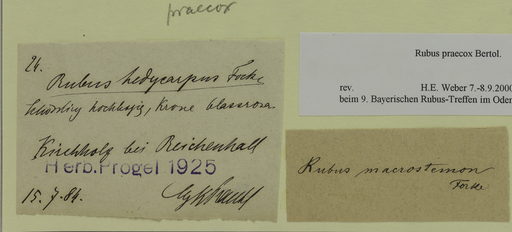 praecox
24.
Rubus hedycarpus Focke
Schössling hochbogig, Krone blassrosa.
Kirchholz bei Reichenhall
Herb. Progel 1925
15. 7. 84.
Rubus praecox Bertol.
rev. H.E. Weber 7.-8.9.2000
beim 9. Bayerischen Rubus-Treffen im Oder
Rubus macrostemon
Focke